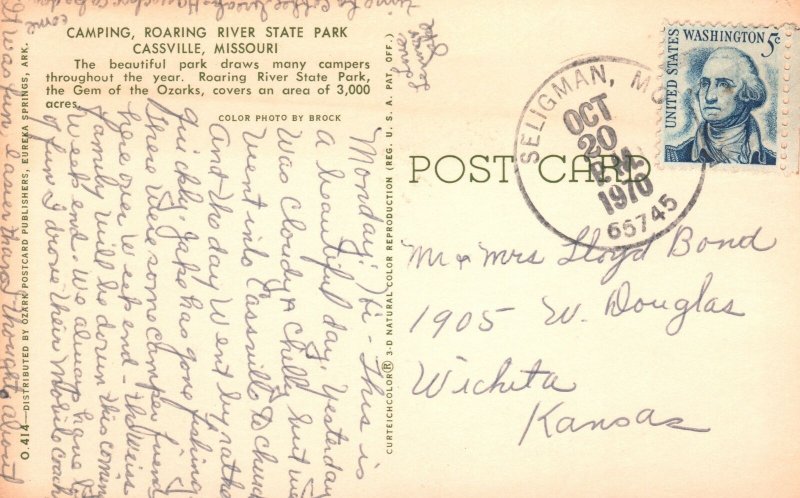 CAMPING, ROARING RIVER STATE PARK
CASSVILLE, MISSOURI
The beautiful park draws many campers
throughout the year. Roaring River State Park,
the Gem of the Ozarks, covers an area of 3,000
acres.
COLOR PHOTO BY BROCK
O.414—DISTRIBUTED BY OZARK POSTCARD PUBLISHERS, EUREKA SPRINGS, ARK.
Monday; Hi - This is
a beautiful day. Yesterday
was cloudy & chilly but we
went into Cassville to church
and the day went by rather
quickly. Jake has gone fishing
There were some camper friends
here over week end - the Weiss
family will be down this coming
week end. We always have
of fun I drove their Mobile coach
It was fun. easier than I thought about
come
CURTEICHCOLOR® 3-D NATURAL COLOR REPRODUCTION (REG. U. S. A. PAT. OFF.)
POST CARD
SELIGMAN, MO
OCT
20
P.M.
1970
65745
UNITED STATES
WASHINGTON 5c
Mr & Mrs Lloyd Bond
1905 W. Douglas
Wichita
Kansas